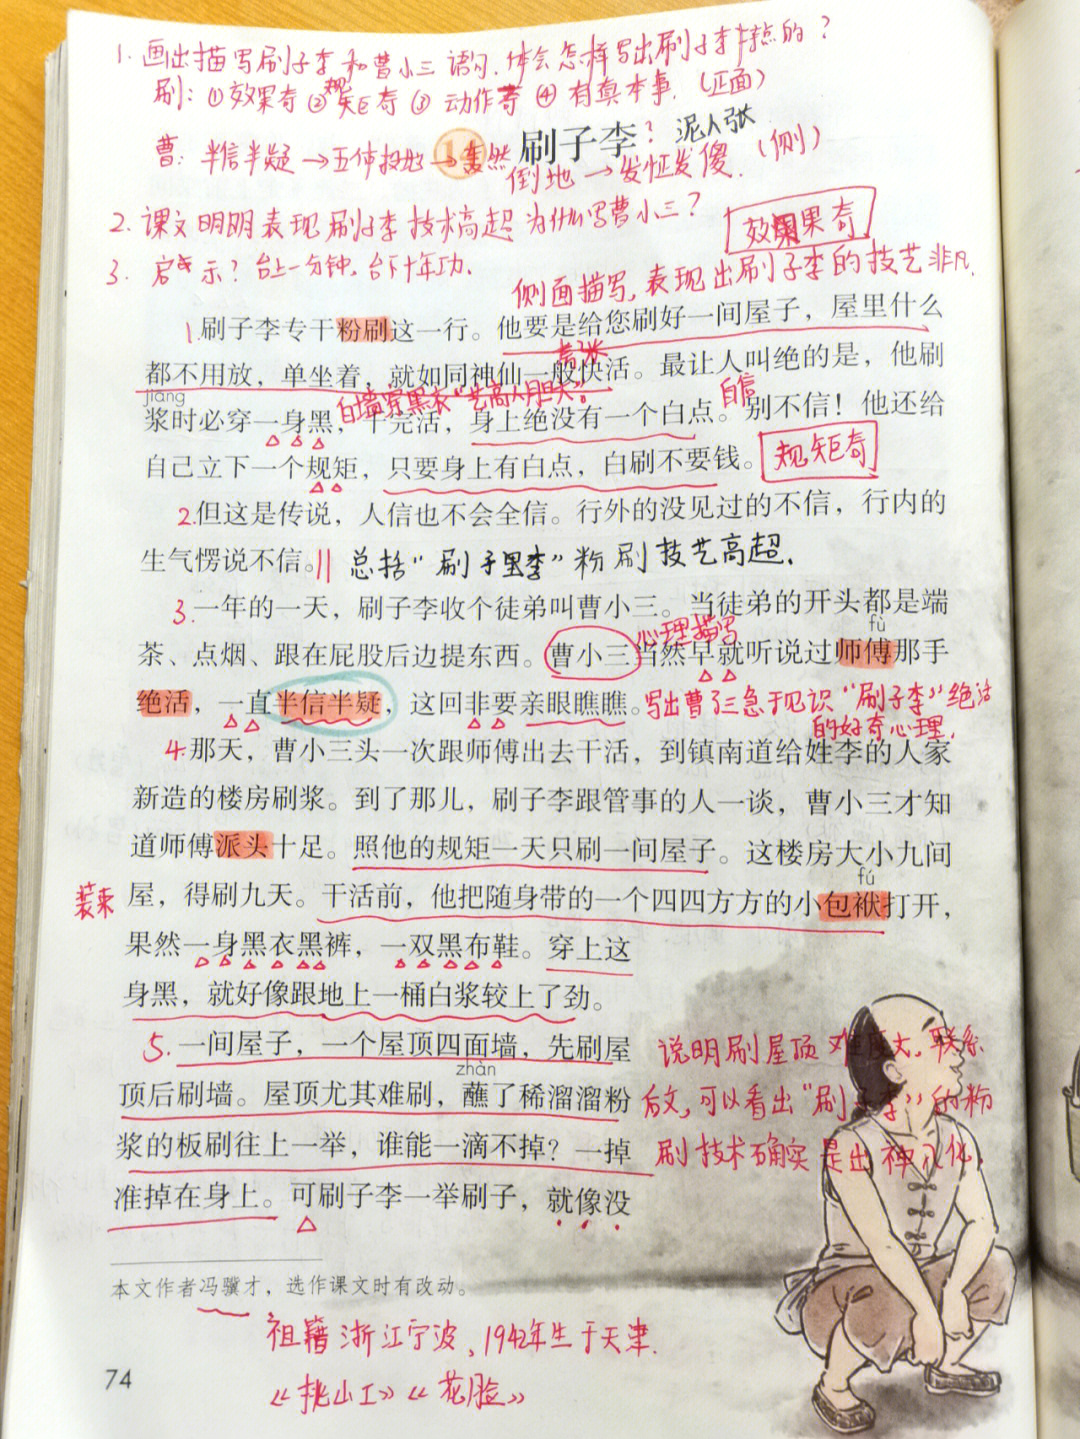 1.画出描写刷子李和曹小三语句.体会怎样写出刷子李特点的?
刷:①效果奇②规矩奇③动作奇④有真本事.(正面)
14 刷子李? 泥人张
曹:半信半疑→五体投地→轰然倒地→发怔发傻.(侧)
2.课文明明表现刷子李技术高超为什么写曹小三?
效果奇
3.启示?台上一分钟,台下十年功.
侧面描写,表现出刷子李的技艺非凡.
1.刷子李专干粉刷这一行。他要是给您刷好一间屋子，屋里什么
夸张
都不用放，单坐着，就如同神仙一般快活。最让人叫绝的是，他刷
jiāng
白墙穿黑衣“艺高人胆大”。
自信
浆时必穿一身黑，干完活，身上绝没有一个白点。别不信！他还给
自己立下一个规矩，只要身上有白点，白刷不要钱。
规矩奇
2.但这是传说，人信也不会全信。行外的没见过的不信，行内的
生气愣说不信。|| 总括“刷子李”粉刷技艺高超.
3.一年的一天，刷子李收个徒弟叫曹小三。当徒弟的开头都是端
心理描写
fù
茶、点烟、跟在屁股后边提东西。曹小三当然早就听说过师傅那手
绝活，一直半信半疑，这回非要亲眼瞧瞧。写出曹小三急于见识“刷子李”绝活
的好奇心理.
4.那天，曹小三头一次跟师傅出去干活，到镇南道给姓李的人家
新造的楼房刷浆。到了那儿，刷子李跟管事的人一谈，曹小三才知
道师傅派头十足。照他的规矩一天只刷一间屋子。这楼房大小九间
fú
装束
屋，得刷九天。干活前，他把随身带的一个四四方方的小包袱打开，
果然一身黑衣黑裤，一双黑布鞋。穿上这
身黑，就好像跟地上一桶白浆较上了劲。
5.一间屋子，一个屋顶四面墙，先刷屋
zhàn
顶后刷墙。屋顶尤其难刷，蘸了稀溜溜粉
浆的板刷往上一举，谁能一滴不掉？一掉
准掉在身上。可刷子李一举刷子，就像没
说明刷屋顶难度大.联系
后文,可以看出“刷子李”的粉
刷技术确实是出神入化.
本文作者冯骥才，选作课文时有改动。
祖籍浙江宁波,1942年生于天津.
《挑山工》《花脸》
74